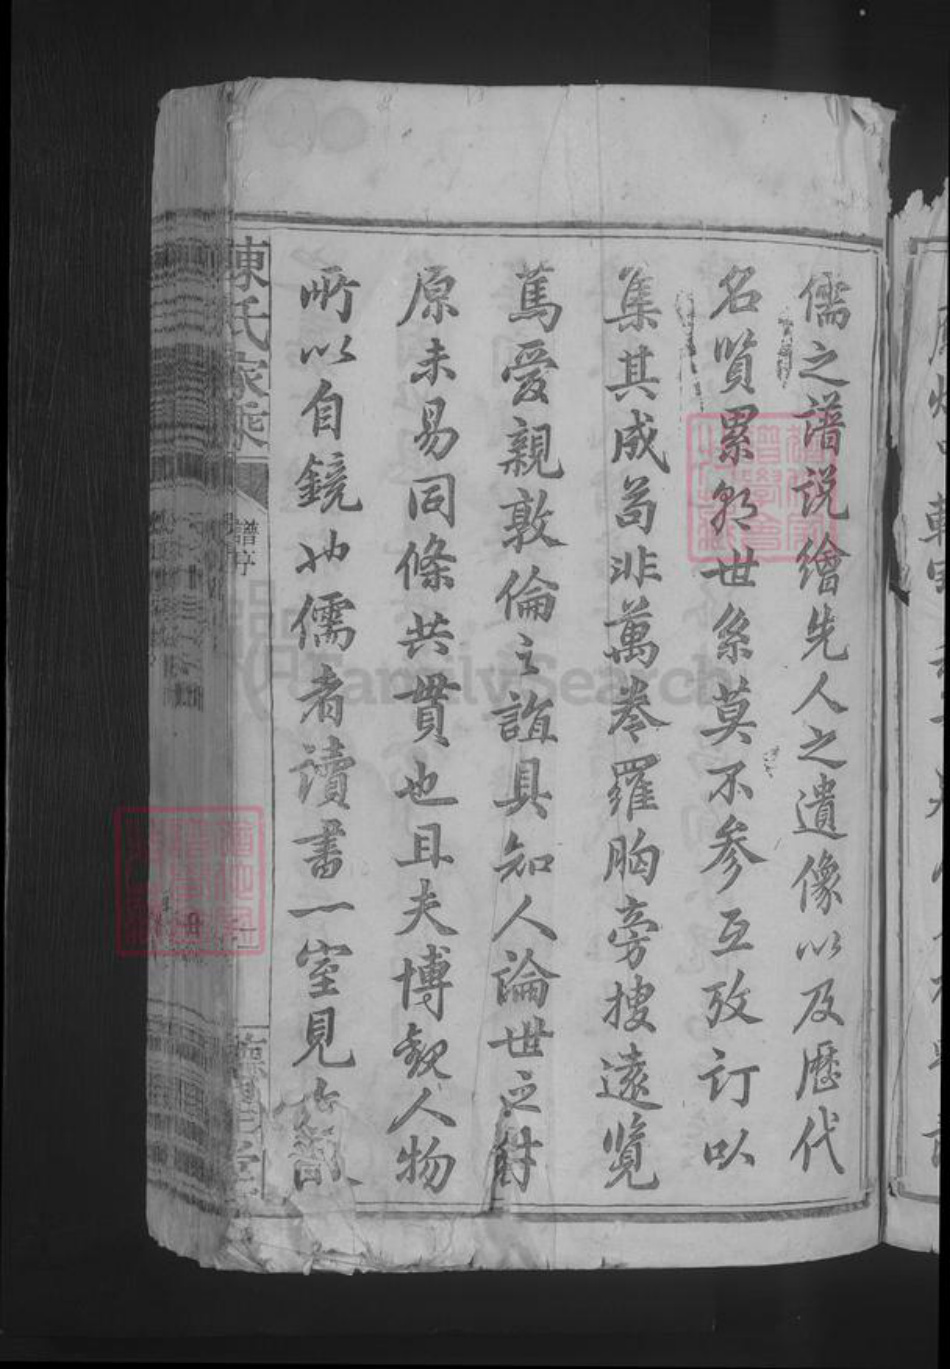 儒之譜說繪先人之遺像以及歷代
名賢累朝世系莫不參互攷訂以
集其成苟非萬卷羅胸旁搜遠覽
篤愛親敦倫之誼具知人論世之
原未易同條共貫也且夫博觀人物
所以自鏡也儒者讀書一室見
陳氏家乘
譜序
FamilySearch